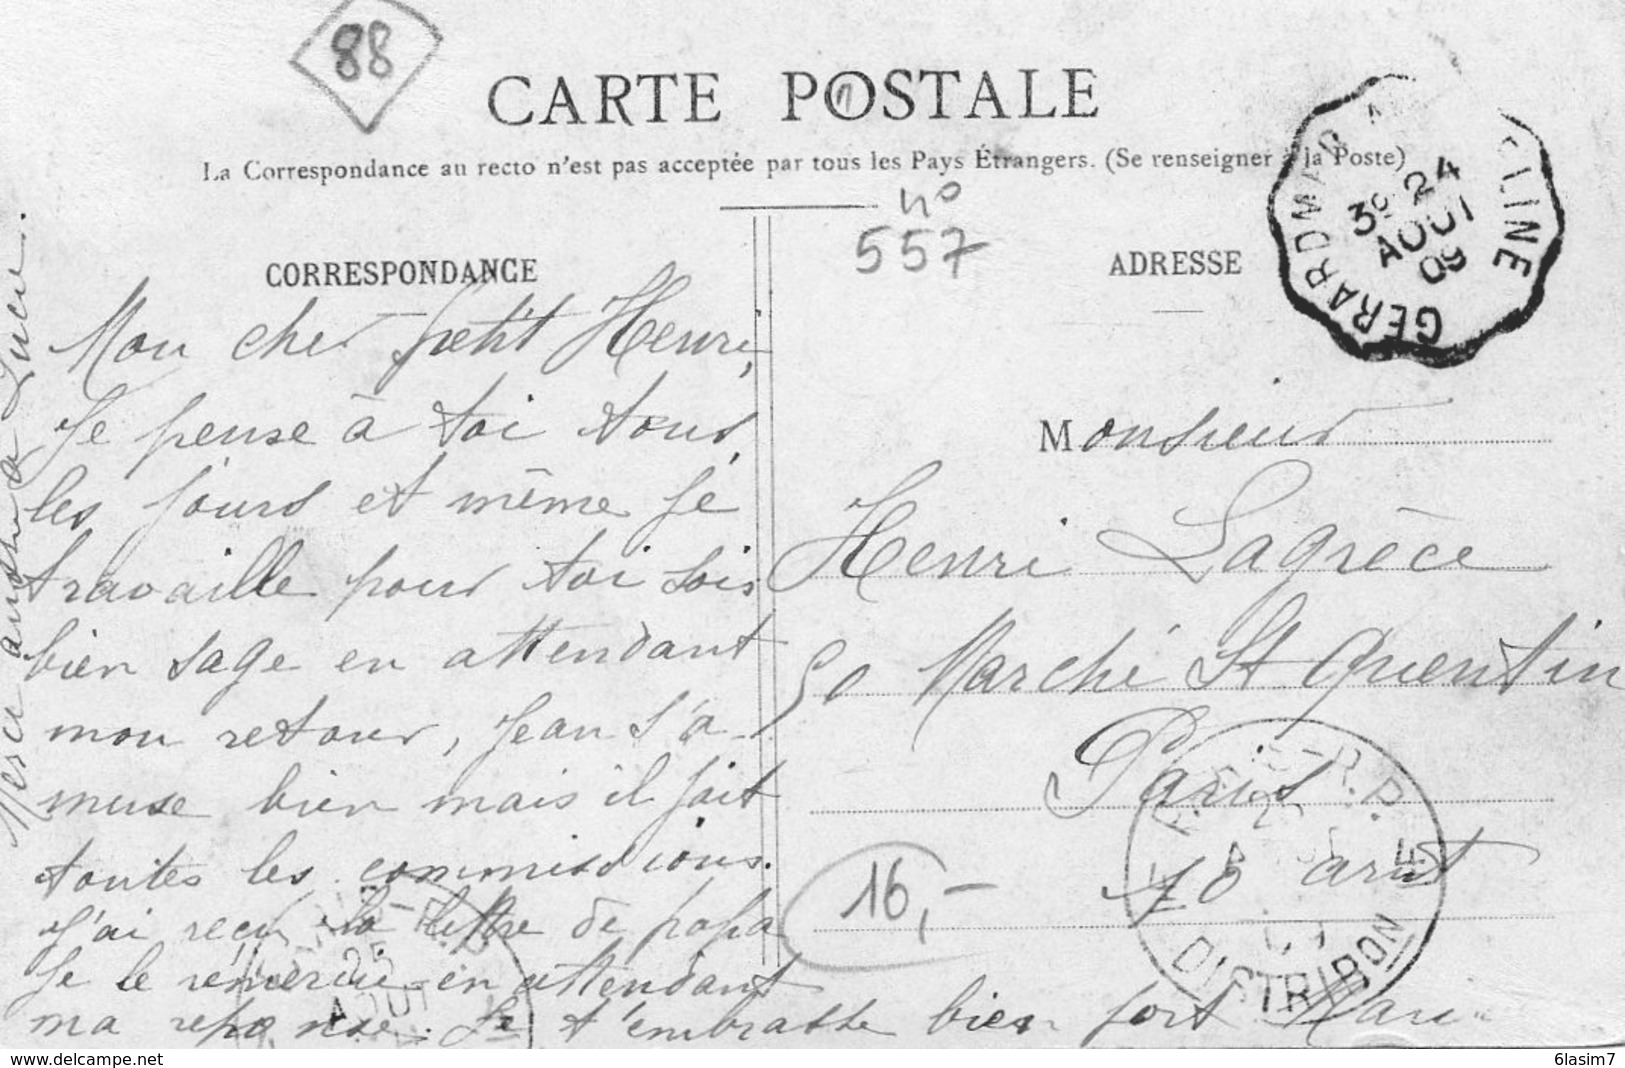 88
CARTE POSTALE
La Correspondance au recto n'est pas acceptée par tous les Pays Étrangers. (Se renseigner à la Poste)
n°
557
CORRESPONDANCE
Mon cher petit Henri,
Je pense à toi tous
les jours et même je
travaille pour toi sois
bien sage en attendant
mon retour, Jean s'a
muse bien mais il fait
toutes les commissions.
J'ai reçu la lettre de papa
Je le remercie en attendant
ma reponse. Je t'embrasse bien fort Marie
Merci aussi a Lucie.
ADRESSE
GERARDMER A LINE
3° 24
AOUT
09
Monsieur
Henri Lagrèce
50 Marché St Quentin
Paris
10 arrt
16,-
R.P.
DISTRIBON
25
AOUT
delcampe.net
6lasim7